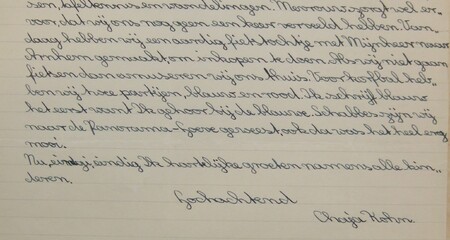 sen, tafeltennis en wandelingen. Mevrouw zorgt wel er-
voor, dat wij ons nog geen een keer verveeld hebben. Van-
daag hebben wij een aardig fietstochtje met Mijnheer naar
Arnhem gemaakt, om inkopen te doen. Als wij niet gaan
fietsen dan amuseren wij ons thuis. Voor korfbal heb-
ben wij twee partijen, blauw en rood. Ik schrijf blauw
het eerst want Ik gehoor bij de blauwe. Schabbes zijn wij
naar de Panorama-hoeve geweest, ook da was het heel erg
mooi.
Nu, eindig Ik hartlijke groeten namens alle kin-
deren.
Hochachtend
Chaja Kohn.